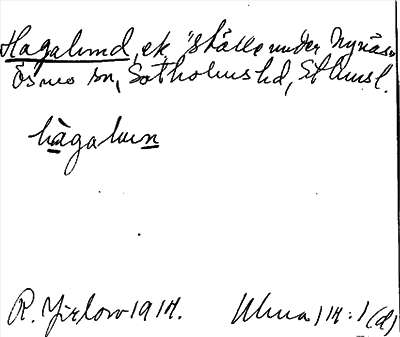 Hagalund, ek "ställe under Nynäs"
Ösmo sn, Sotholms hd, Sthlmsl.
hàgalun
R. Jirlow 1914. Ulma 114:1 (d)